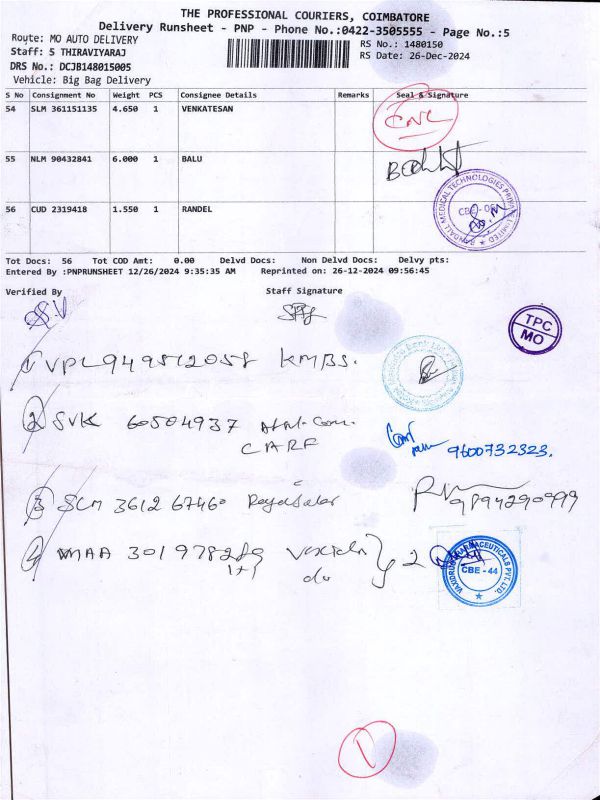 THE PROFESSIONAL COURIERS, COIMBATORE
Delivery Runsheet - PNP - Phone No.:0422-3505555 - Page No.:5
Route: MO AUTO DELIVERY
RS No.: 1480150
Staff: 5 THIRAVIYARAJ
RS Date: 26-Dec-2024
DRS No.: DCJB148015005
Vehicle: Big Bag Delivery
S No Consignment No Weight PCS Consignee Details Remarks Seal & Signature
54 SLM 361151135 4.650 1 VENKATESAN
CNL
55 NLM 90432841 6.000 1 BALU
56 CUD 2319418 1.550 1 RANDEL
MEDICAL TECHNOLOGIES PRIVATE LIMITED
Tot Docs: 56 Tot COD Amt: 0.00 Delvd Docs: Non Delvd Docs: Delvy pts:
Entered By :PNPRUNSHEET 12/26/2024 9:35:35 AM Reprinted on: 26-12-2024 09:56:45
Verified By Staff Signature
TPC
MO
1 VPL 949512058 KMBS.
2 SVK 60504937
CARE
9600732323.
3 SLM 361267460
9894290999
4 MAA 301978289
1+1
do
2
PHARMACEUTICALS PVT. LTD.
CBE - 44
1